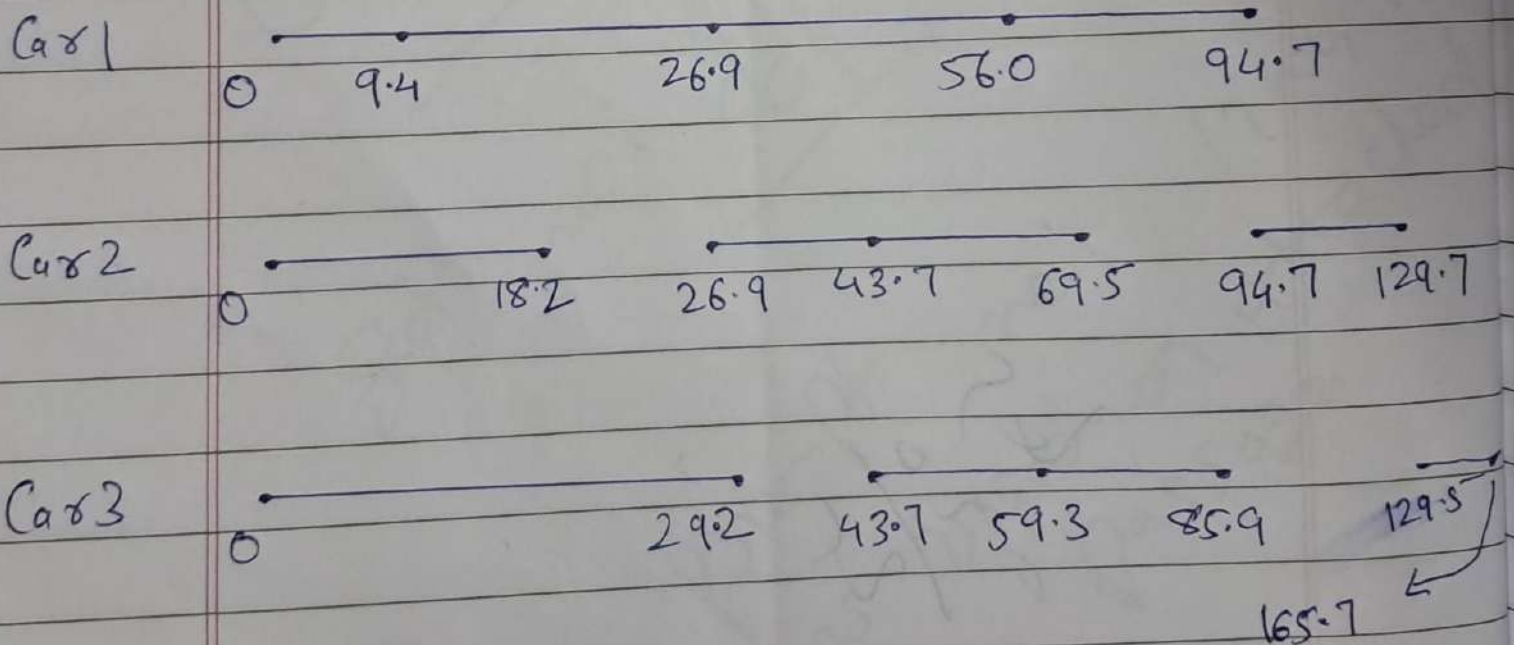 Car 1
0 9.4 26.9 56.0 94.7
Car 2
0 18.2 26.9 43.7 69.5 94.7 129.7
Car 3
0 29.2 43.7 59.3 85.9 129.5
165.7